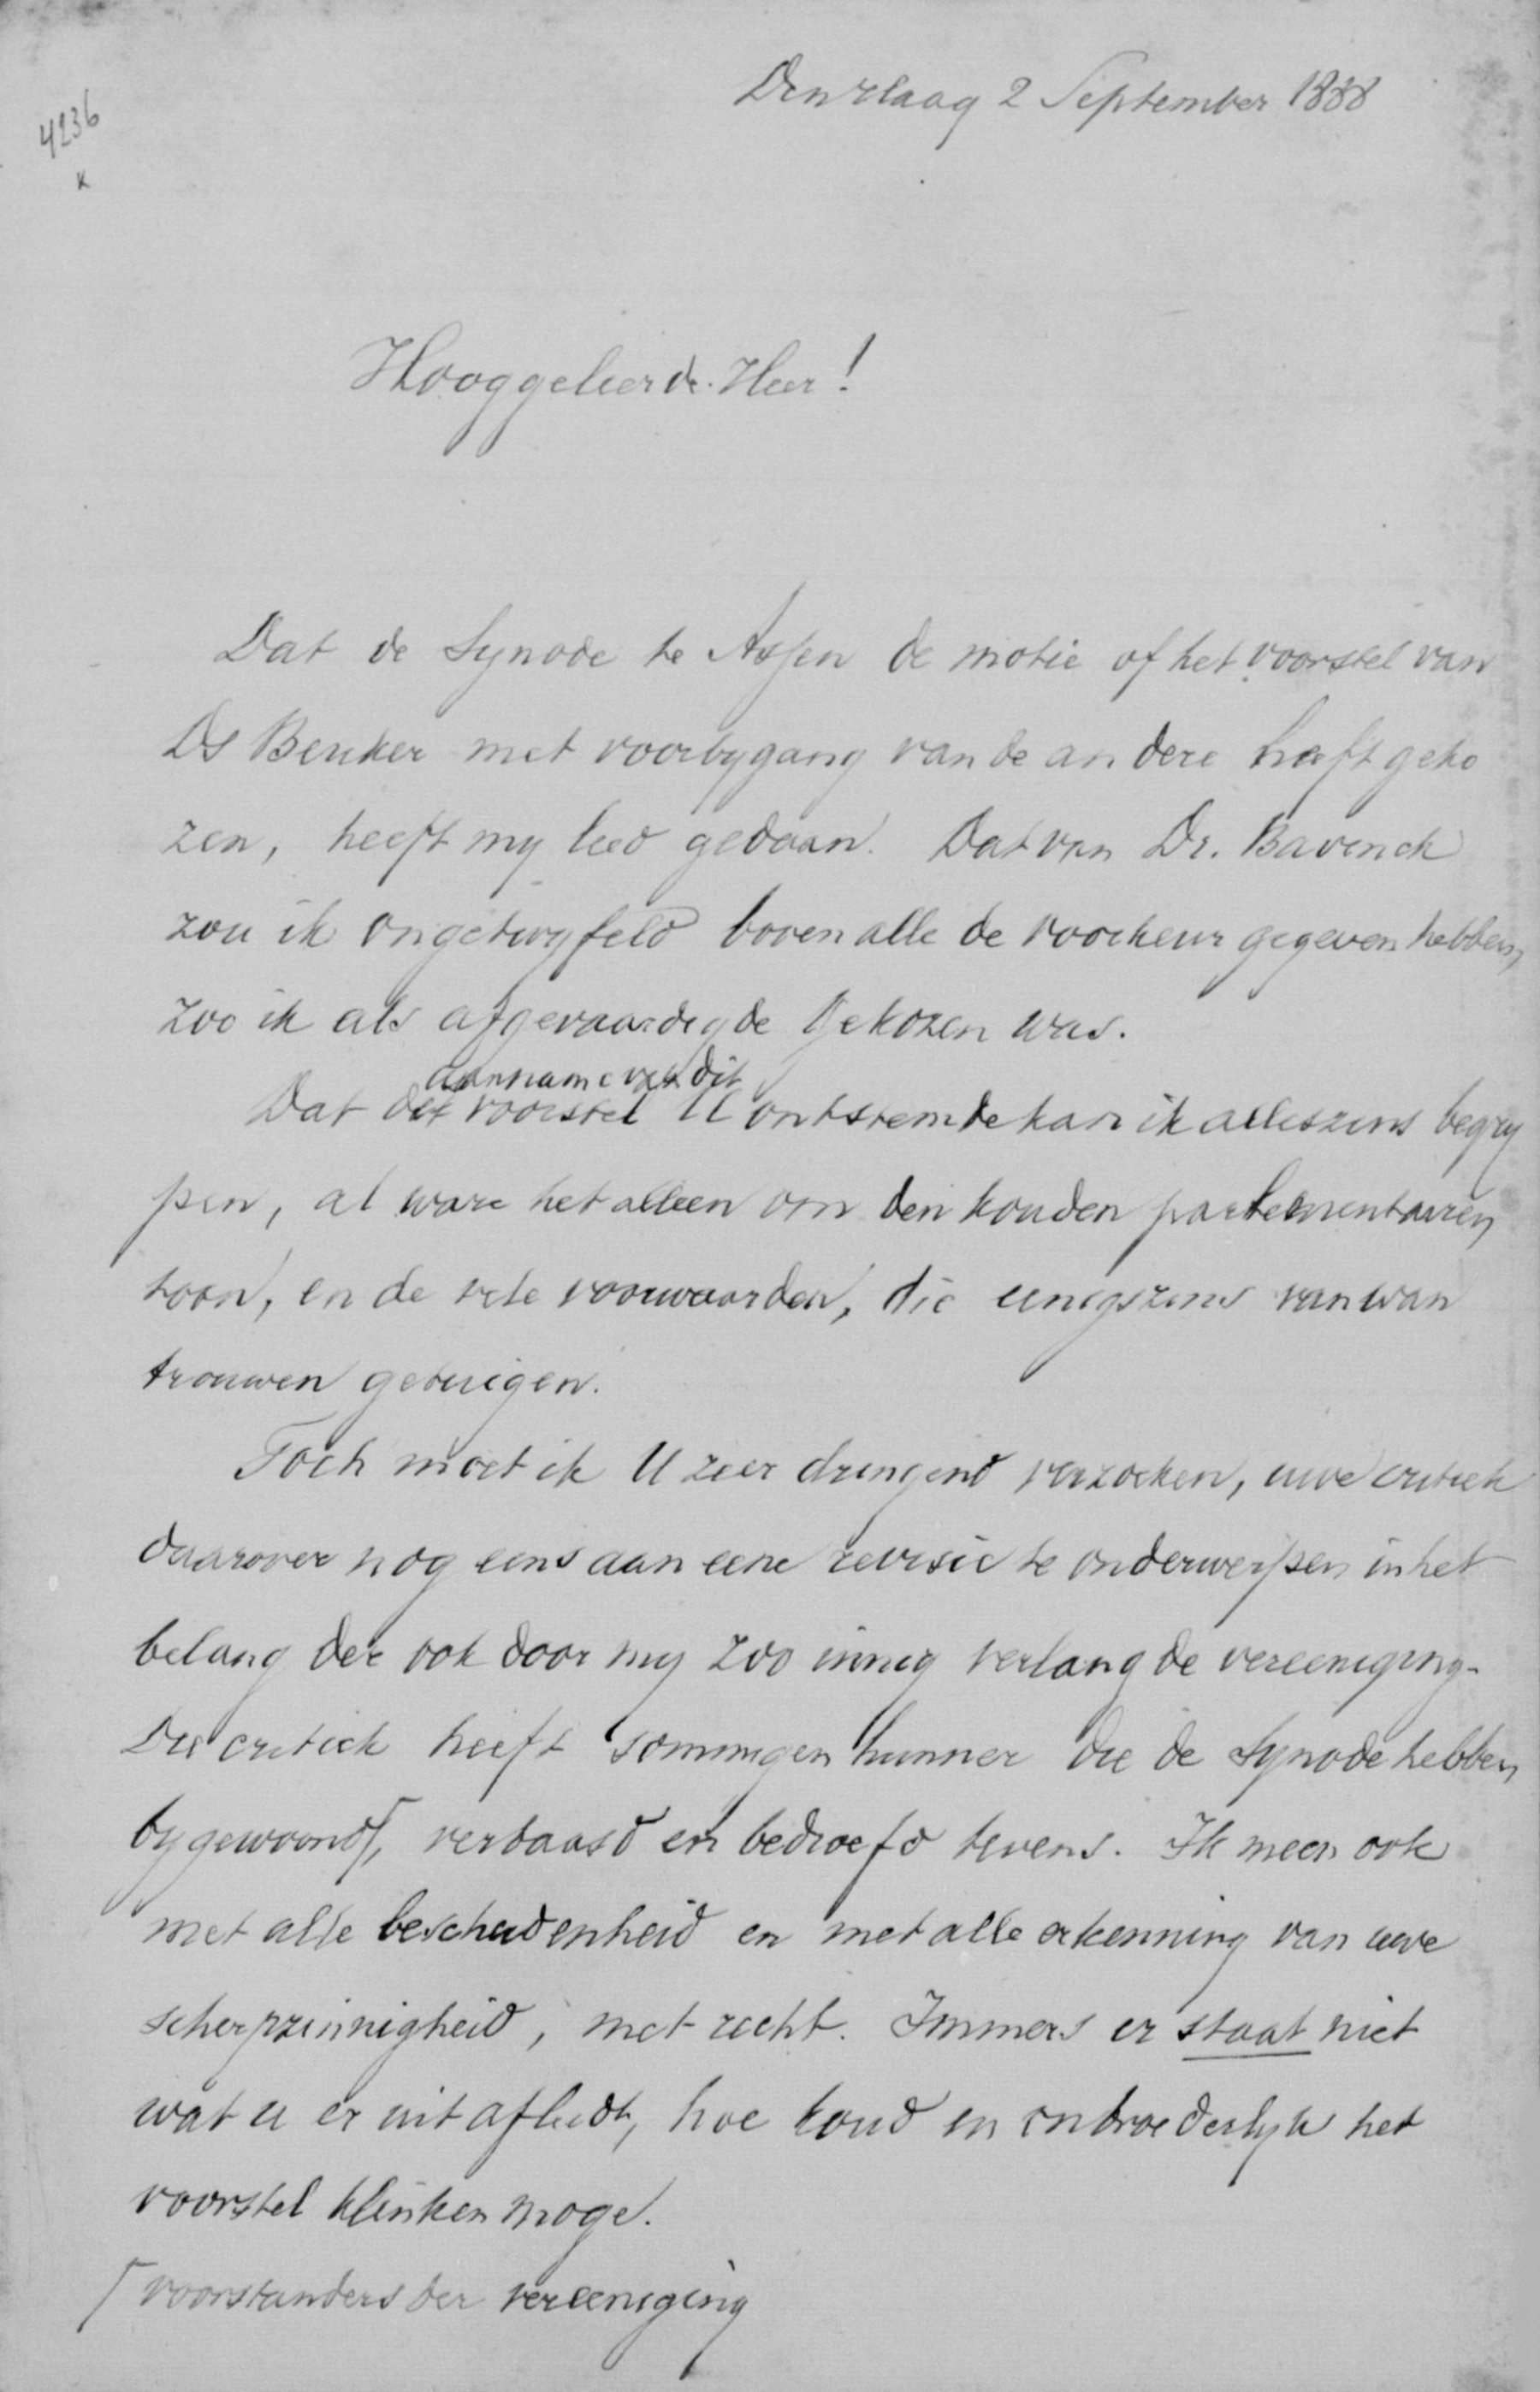 Den Haag 2 September 1888
4236
K
Hooggeleerde Heer!
Dat de Synode te Assen de motie of het voorstel van
Ds Beuker met voorbygang van de andere heeft geko
zen, heeft my leed gedaan. Dat van Dr. Bavinck
zou ik ongetwyfeld boven alle de voorkeur gegeven hebben,
zoo ik als afgevaardigde gekozen was.
aanname van dit
Dat dit voorstel U ontstemde kan ik alleszins begry
pen, al ware het alleen om den kouden parlementairen
toon, en de vele voorwaarden, die eenigszins van wan
trouwen getuigen.
Toch moet ik U zeer dringend verzoeken, uwe critiek
daarover nog eens aan eene revisie te onderwerpen in het
belang der ook door my zoo innig verlangde vereeniging.
Die critiek heeft sommigen hunner die de Synode hebben
bygewoond⌈, verbaasd en bedroefd tevens. Ik meen ook
met alle bescheidenheid en met alle erkenning van uwe
scherpzinnigheid, met recht. Immers er staat niet
wat u er uit afleidt, hoe koud en onbroederlyk het
voorstel klinken moge.
⌈ voorstanders der vereeniging